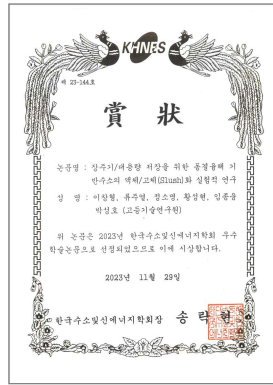 KHNES
제 23-144호
賞 狀
논문명 : 장주기/대용량 저장을 위한 동결융해 기
반수소의 액체/고체(Slush)화 실험적 연구
성 명 : 이창형, 류주열, 정소명, 황성현, 임종웅
박성호 (고등기술연구원)
위 논문은 2023년 한국수소및신에너지학회 우수
학술논문으로 선정되었으므로 이에 시상합니다.
2023년 11월 29일
한국수소및신에너지학회장 송 락 현